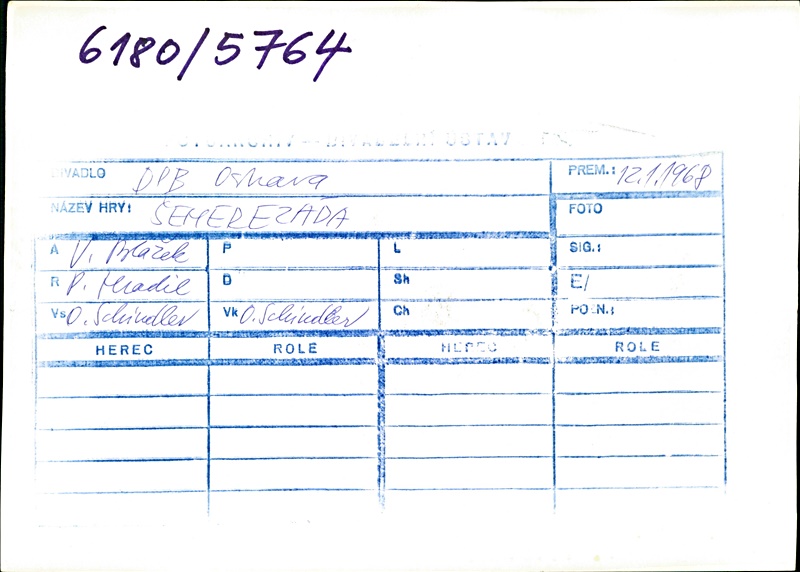 6180/5764
DIVADLO DPB Ostrava PREM.: 12.1.1968
NÁZEV HRY: ŠEHEREZÁDA FOTO
A V. Blažek P L SIG.:
R P. Hradil D Sh E/
Vs O. Schindler Vk O. Schindler Ch POZN.:
HEREC ROLE HEREC ROLE